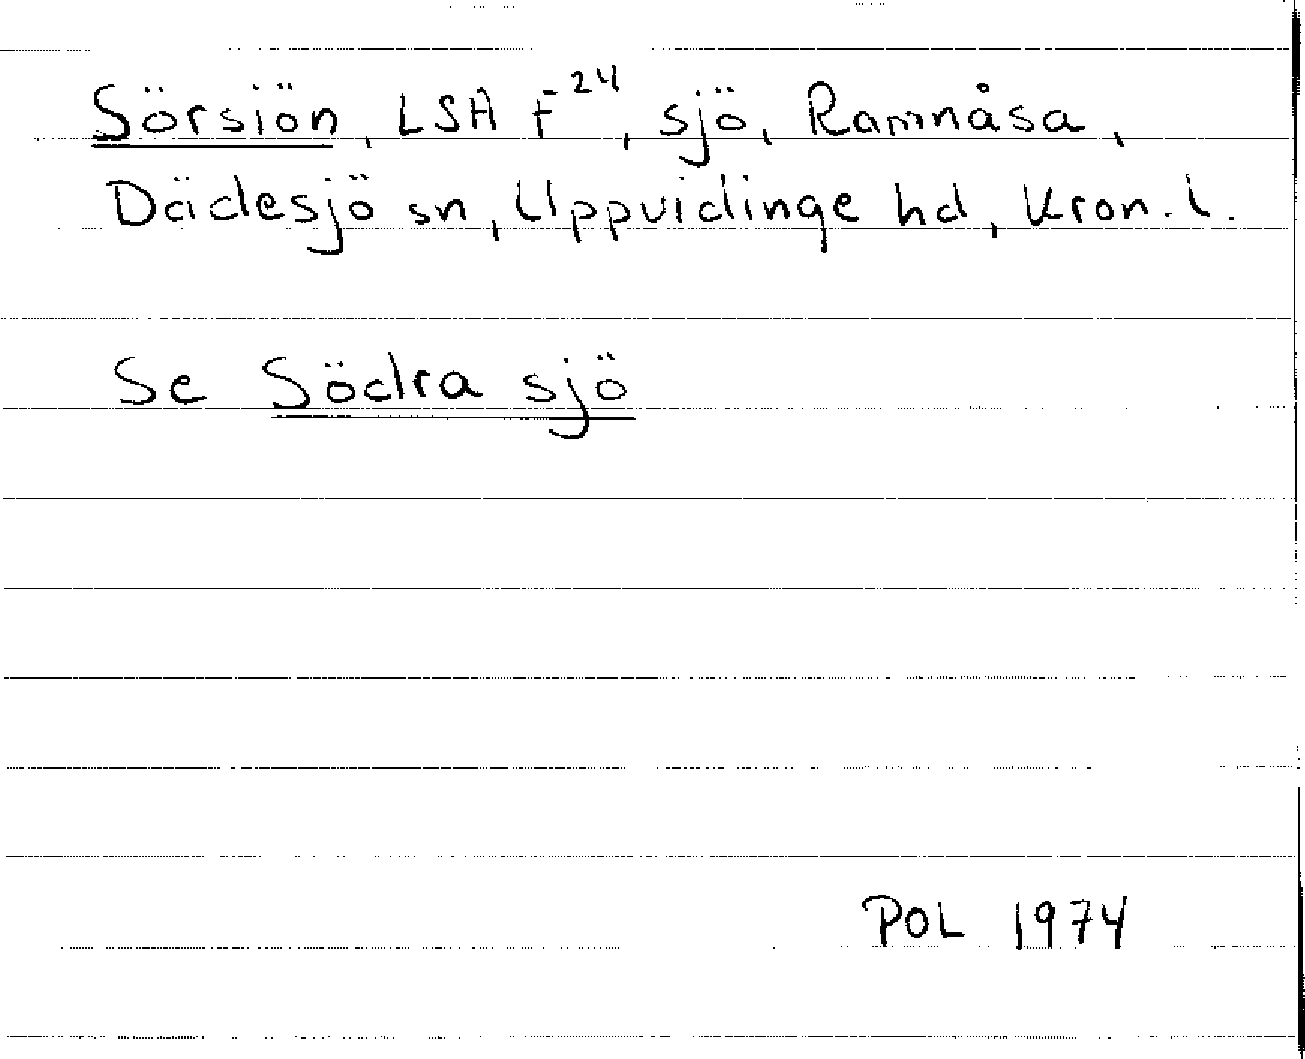 Sörsiön, LSA F²⁴, sjö, Ramnåsa,
Dädesjö sn, Uppvidinge hd, Kron. l.
Se Södra sjö
POL 1974